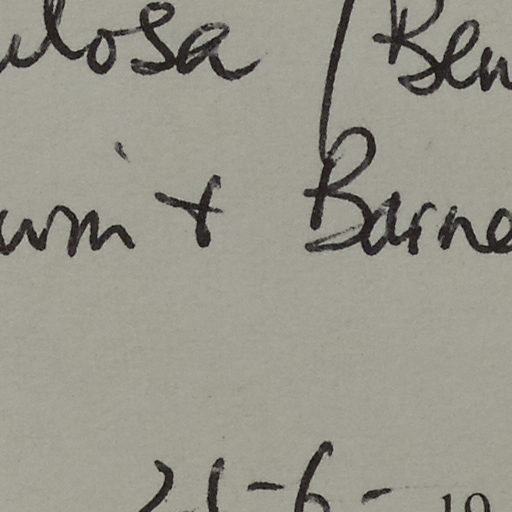 ulosa (Ben
win + Barne
21-6- 19